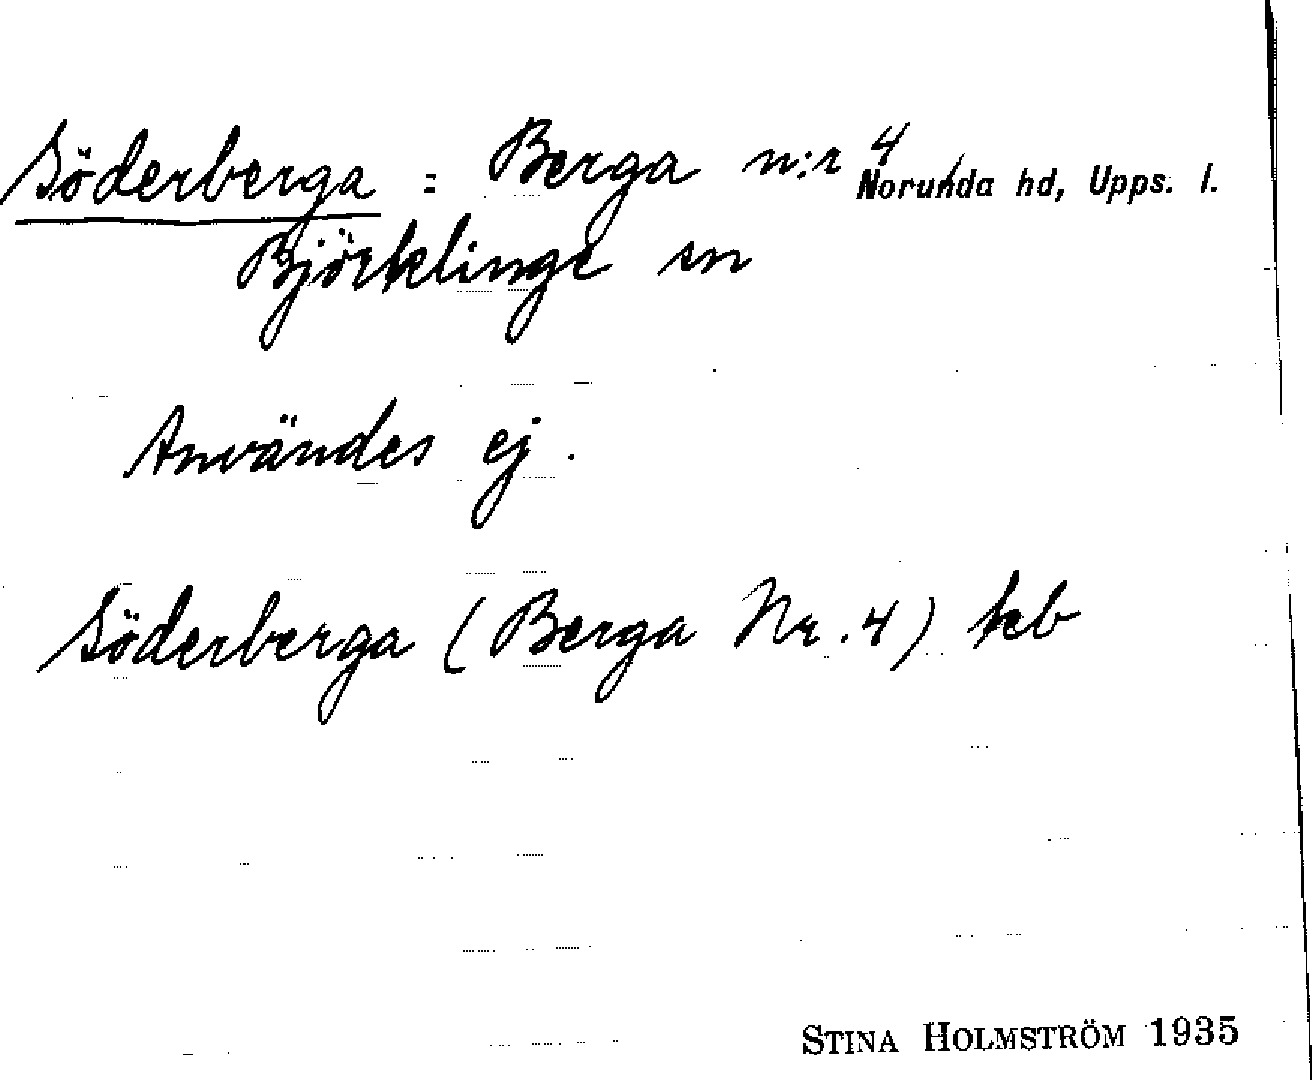 Söderberga = Berga n:r 4 Norunda hd, Upps. l.
Björklinge sn
Användes ej.
Söderberga (Berga Nr. 4) kb
STINA HOLMSTRÖM 1935